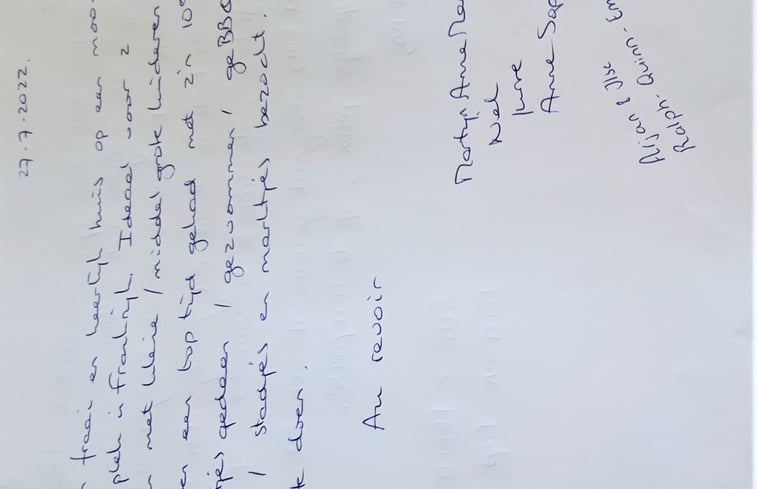 27.7.2022.
n fraai en heerlijk huis op een moo
plek in Frankrijk. Ideaal voor 2
n met kleine / middel grote kinderen
en een top tijd gehad met z'n 10e
jes gedaan / gezwommen / geBBQ
/ stadjes en marktjes bezocht.
k doen.
Au revoir
Martijn Anne Ma
Nel
Jurre
Anne Sop
Arjan & Ilse
Ralph - Quinn - Em